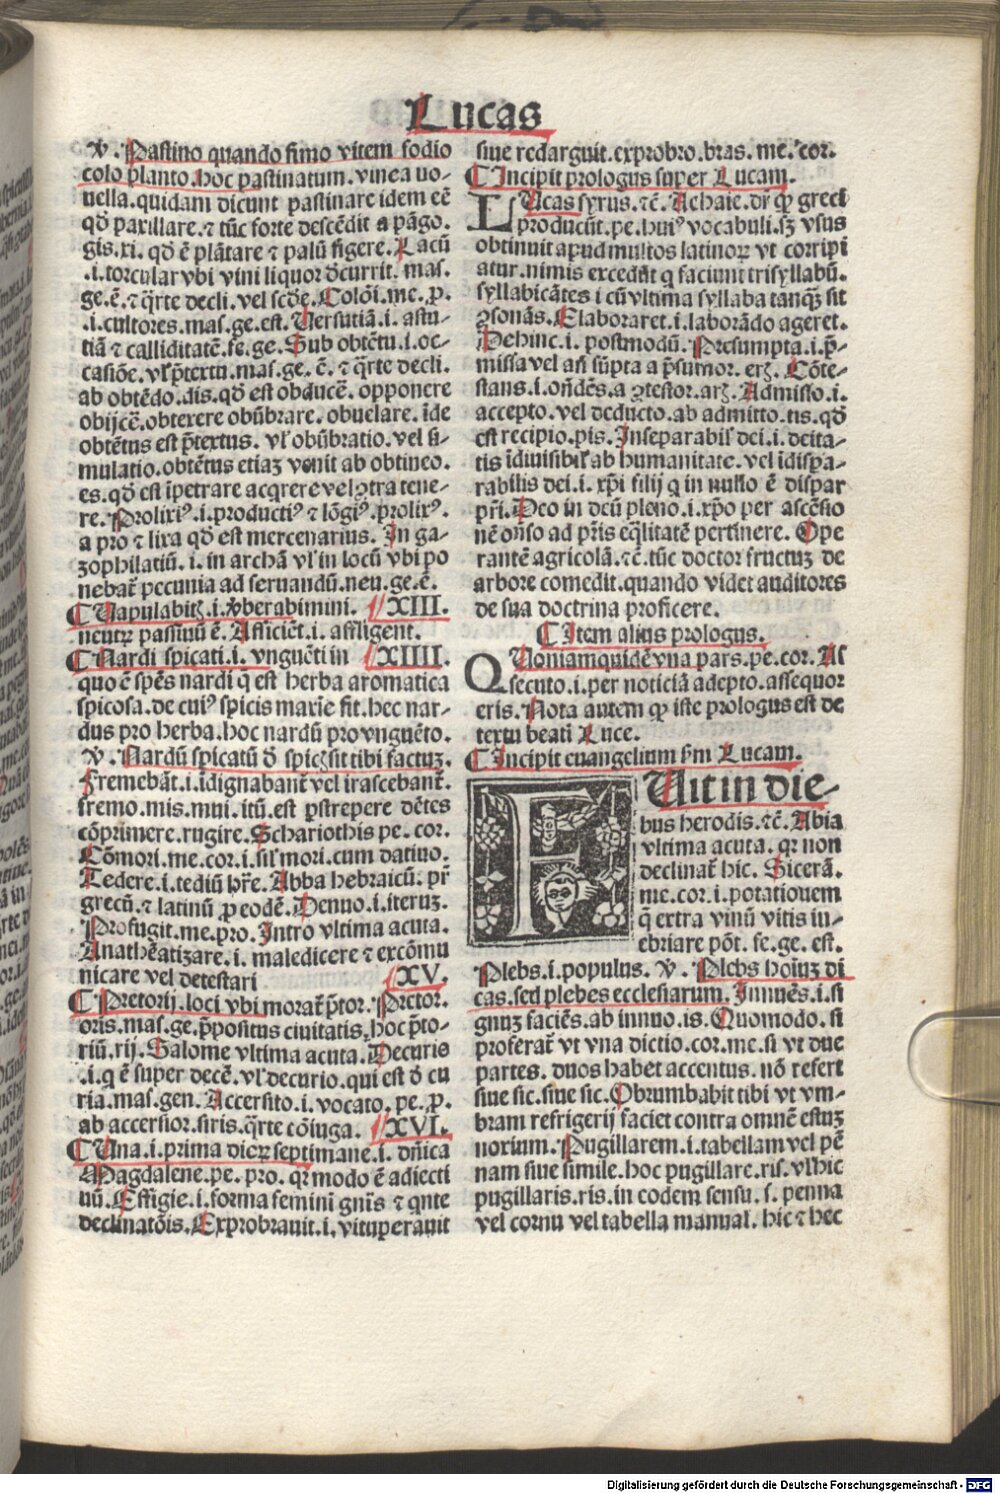 Lucas
ꝟ. Pastino quando fimo vitem fodio
colo planto. hoc pastinatum. vinea no-
uella. quidam dicunt pastinare idem eē
qđ paxillare. ⁊ tūc forte descēdit a pāgo.
gis. xi. qđ ē plātare ⁊ palū figere. Lacū
.i. torcular vbi vini liquor decurrit. mas.
ge. ē. ⁊ q̄rte decli. vel scđe. Colōi. me. ꝓ.
.i. cultores. mas. ge. est. Versutiā. i. astu-
tiā ⁊ calliditatē. fe. ge. Sub obtētu. i. oc-
casiōe. vl' p̄textu. mas. ge. ē. ⁊ q̄rte decli.
ab obtēdo. dis. qđ est obducē. opponere
obijcē. obtexere obūbrare. obuelare. īde
obtētus est p̄textus. vl' obūbratio. vel si-
mulatio. obtētus etiaꝫ venit ab obtineo.
es. qđ est īpetrare acq̄rere vel ꝯtra tene-
re. Prolixiꝰ. i. productiꝰ ⁊ lōgiꝰ. prolixꝰ.
a pro ⁊ lixa qđ est mercenarius. In ga-
zophilatiū. i. in archā vl' in locū vbi po
nebat̄ pecunia ad seruandū. neu. ge. ē.
¶ Vapulabitꝭ. i. v̄berabimini. XIII.
neutꝝ passiuū ē. Afficiēt. i. affligent.
¶ Nardi spicati. i. vnguēti in XIIII.
quo ē spēs nardi q̄ est herba aromatica
spicosa. de cuiꝰ spicis maxie fit. hec nar-
dus pro herba. hoc nardū pro vnguēto.
ꝟ. Nardū spicatū đ spicꝭ sit tibi factuꝫ.
Fremebāt. i. īdignabant̄ vel irascebant̄.
fremo. mis. mui. itū. est ꝑstrepere dētes
cōprimere. rugire. Schariothis pe. cor.
Cōmori. me. cor. i. sil' mori. cum datiuo.
Tedere. i. tediū hr̄e. Abba hebraicū. pr̄
grecū. ⁊ latinū ꝓ eodē. Denuo. i. iteruꝫ.
Profugit. me. pro. Intro vltima acuta.
Anathēatizare. i. maledicere ⁊ excōmu
nicare vel detestari XV.
¶ Pretorij. loci vbi morat̄ p̄tor. Pretor.
oris. mas. ge. p̄positus ciuitatis. hoc p̄to-
riū. rij. Salome vltima acuta. Decurio
.i. q ē super decē. vl' decurio. qui est đ cu
ria. mas. gen. Accersito. i. vocato. pe. ꝓ.
ab accersior. siris. q̄rte cōiuga. XVI.
¶ Una. i. prima dieꝝ septimane. i. dn̄ica
Magdalene. pe. pro. qꝛ modo ē adiecti
uū. Effigie. i. forma feminī gn̄is ⁊ qnte
declinatōis. Exprobrauit. i. vituperauit
siue redarguit. exprobro. bras. me. cor.
¶ Incipit prologus super Lucam.
LUcas syrus. ⁊c̄. Achaie. dr̄ ꝙ greci
producūt. pe. huiꝰ vocabuli. sꝫ vsus
obtinuit apud multos latinoꝝ vt corripi
atur. nimis excedūt q faciunt trisyllabū.
syllabicātes i cū vltima syllaba tanqꝫ sit
ꝯsonās. Elaboraret. i. laborādo ageret.
Dehinc. i. postmodū. Presumpta. i. p̄-
missa vel an̄ sūpta a p̄sumor. erꝭ. Cōte-
stans. i. on̄dēs. a ꝯtestor. arꝭ. Admisso. i.
accepto. vel deducto. ab admitto. tis. qđ
est recipio. pis. Inseparabil' dei. i. deita-
tis īdiuisibil' ab humanitate. vel īdispa-
rabilis dei. i. xp̄i filij q in nullo ē dispar
pr̄i. Deo in deū pleno. i. xp̄o per ascēsio
nē on̄so ad pr̄is eq̄litatē pertinere. Ope
rantē agricolā. ⁊c̄. tūc doctor fructuꝫ de
arbore comedit. quando videt auditores
de sua doctrina proficere.
¶ Item alius prologus.
QUoniamquidē vna pars. pe. cor. As
secuto. i. per noticiā adepto. assequor
eris. Nota autem ꝙ iste prologus est de
textu beati Luce.
¶ Incipit euangelium sm̄ Lucam.
FUit in die-
bus herodis. ⁊c̄. Abia
vltima acuta. qꝛ non
declinat̄ hic. Sicerā.
me. cor. i. potationem
q̄ extra vinū vitis in-
ebriare pōt. fe. ge. est.
Plebs. i. populus. ꝟ. Plebs hoīuꝫ di
cas. sed plebes ecclesiarum. Innuēs. i. si
gnuꝫ faciēs. ab innuo. is. Quomodo. si
proferat̄ vt vna dictio. cor. me. si vt due
partes. duos habet accentus. nō refert
siue sic. siue sic. Obrumbabit tibi vt vm-
bram refrigerij faciet contra omnē estuꝫ
noxium. Pugillarem. i. tabellam vel pē
nam siue simile. hoc pugillare. ris. vl' hic
pugillaris. ris. in eodem sensu. s. penna
vel cornu vel tabella manual. hic ⁊ hec
Digitalisierung gefördert durch die Deutsche Forschungsgemeinschaft - DFG